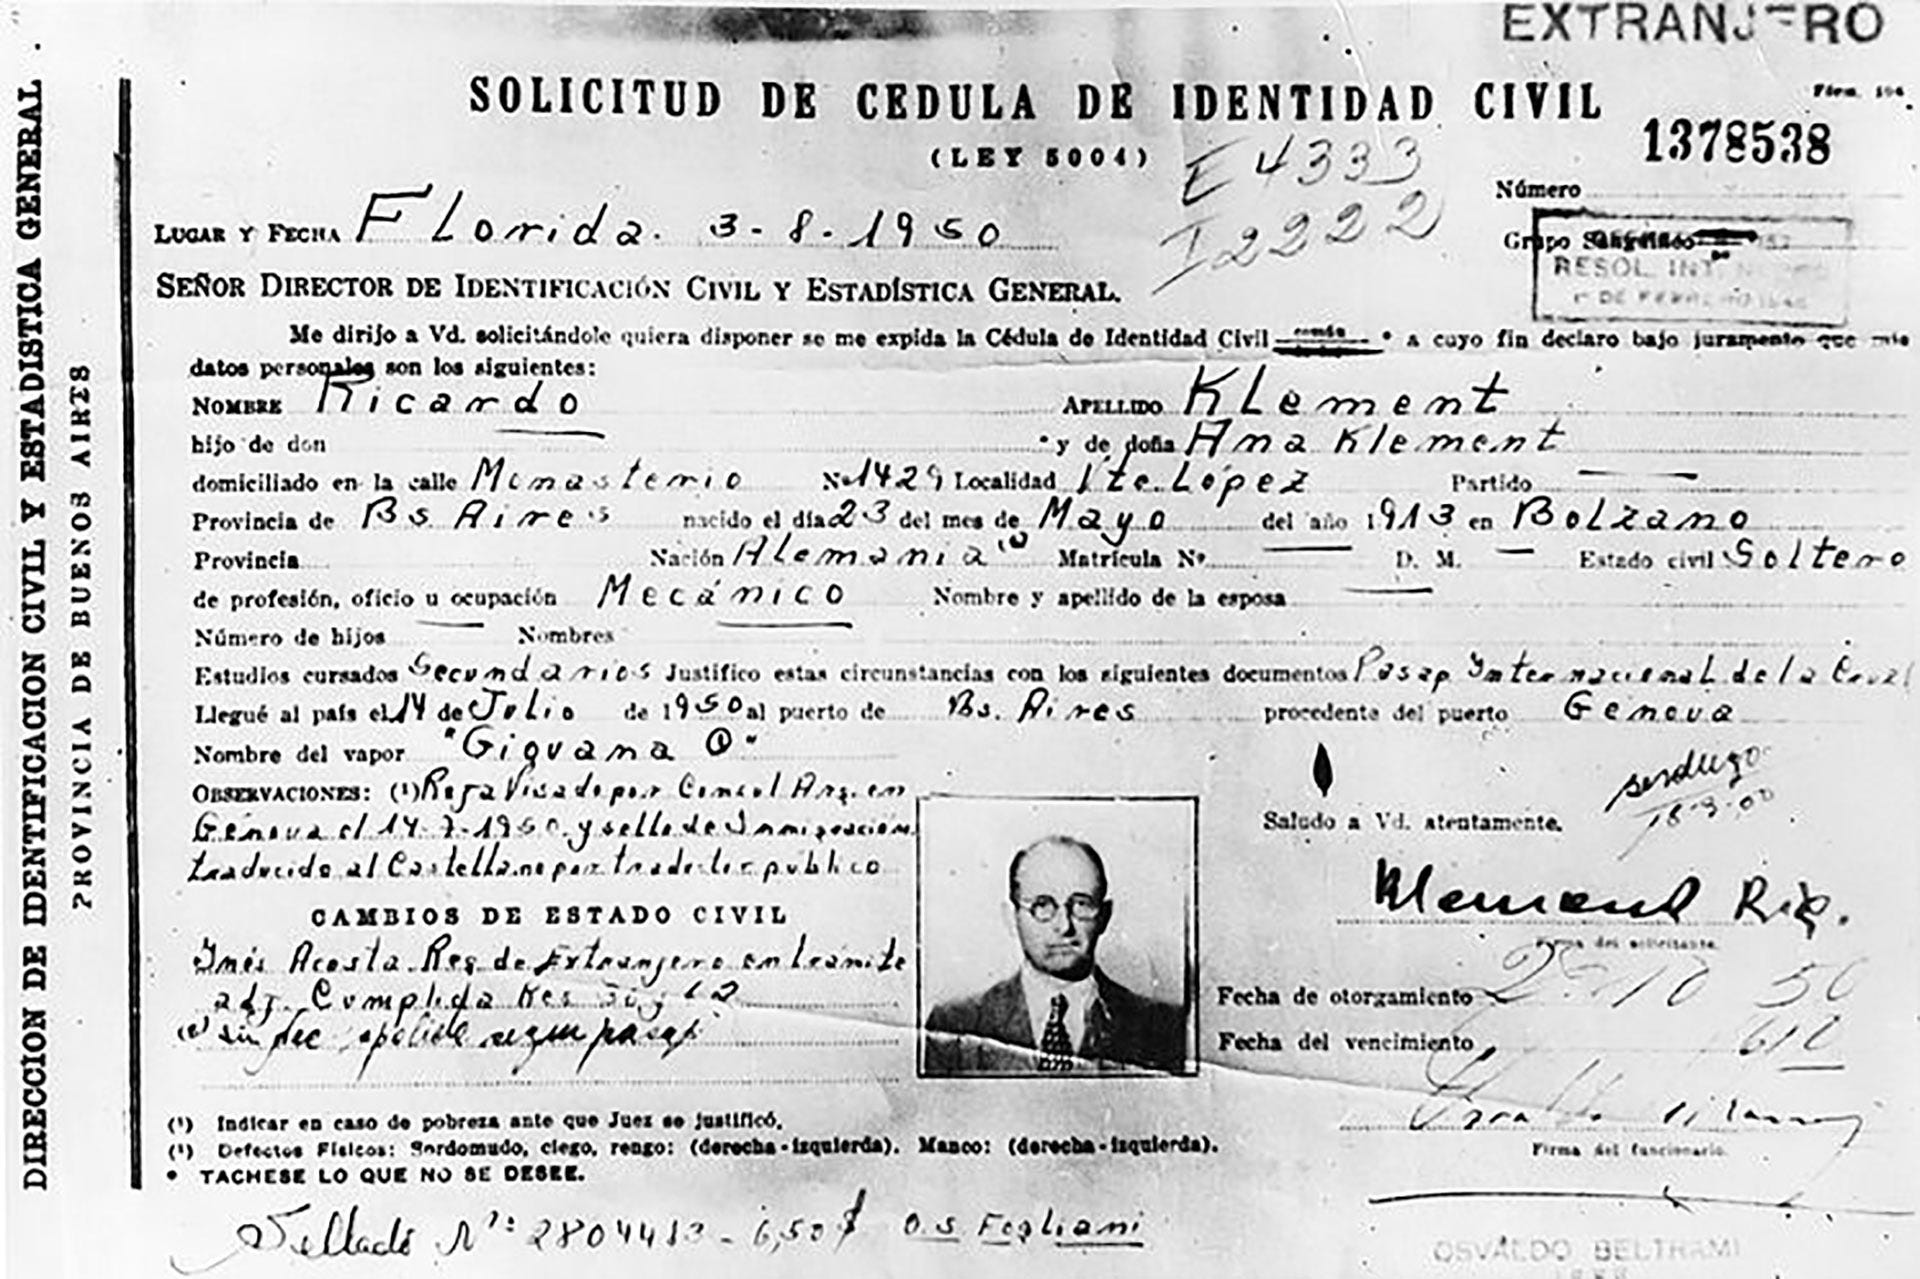 EXTRANJERO
SOLICITUD DE CEDULA DE IDENTIDAD CIVIL
Fórm. 104
(LEY 5004)
1378538
E 4333
I 2222
Número
LUGAR Y FECHA Florida. 3-8-1950
Grupo Sanguíneo
RESOL. INT.
SEÑOR DIRECTOR DE IDENTIFICACIÓN CIVIL Y ESTADÍSTICA GENERAL.
Me dirijo a Vd. solicitándole quiera disponer se me expida la Cédula de Identidad Civil común * a cuyo fin declaro bajo juramento que mis
datos personales son los siguientes:
NOMBRE Ricardo APELLIDO Klement
hijo de don * y de doña Ana Klement
domiciliado en la calle Monasterio No 1429 Localidad Vte. López Partido
Provincia de Bs Aires nacido el día 23 del mes de Mayo del año 1913 en Bolzano
Provincia Nación Alemania Matrícula Nº D. M. Estado civil Soltero
de profesión, oficio u ocupación Mecánico Nombre y apellido de la esposa
Número de hijos Nombres
Estudios cursados Secundarios Justifico estas circunstancias con los siguientes documentos Pasap Internacional de la Cruz
Llegué al país el 14 de Julio de 1950 al puerto de Bs. Aires procedente del puerto Génova
Nombre del vapor "Giovana C"
OBSERVACIONES: (1) Roja Visado por Consul Arg. en
Génova el 14-7-1950 y sello de Inmigración
traducido al Castellano por traductor público
Saludo a Vd. atentamente.
CAMBIOS DE ESTADO CIVIL
Klement Ric.
Firma del solicitante.
Inés Acosta Reg. de Extranjero en trámite
adj. Cumplida
segun pasap
Fecha de otorgamiento 2-10 50
Fecha del vencimiento
Firma del funcionario.
(1) Indicar en caso de pobreza ante que Juez se justificó.
(1) Defectos Físicos: Sordomudo, ciego, rengo: (derecha-izquierda). Manco: (derecha-izquierda).
* TACHESE LO QUE NO SE DESEE.
Sellado Nº: 2804413 - 6,50$ O.S. Fogliani
OSVALDO BELTRAMI
DIRECCION DE IDENTIFICACION CIVIL Y ESTADISTICA GENERAL
PROVINCIA DE BUENOS AIRES